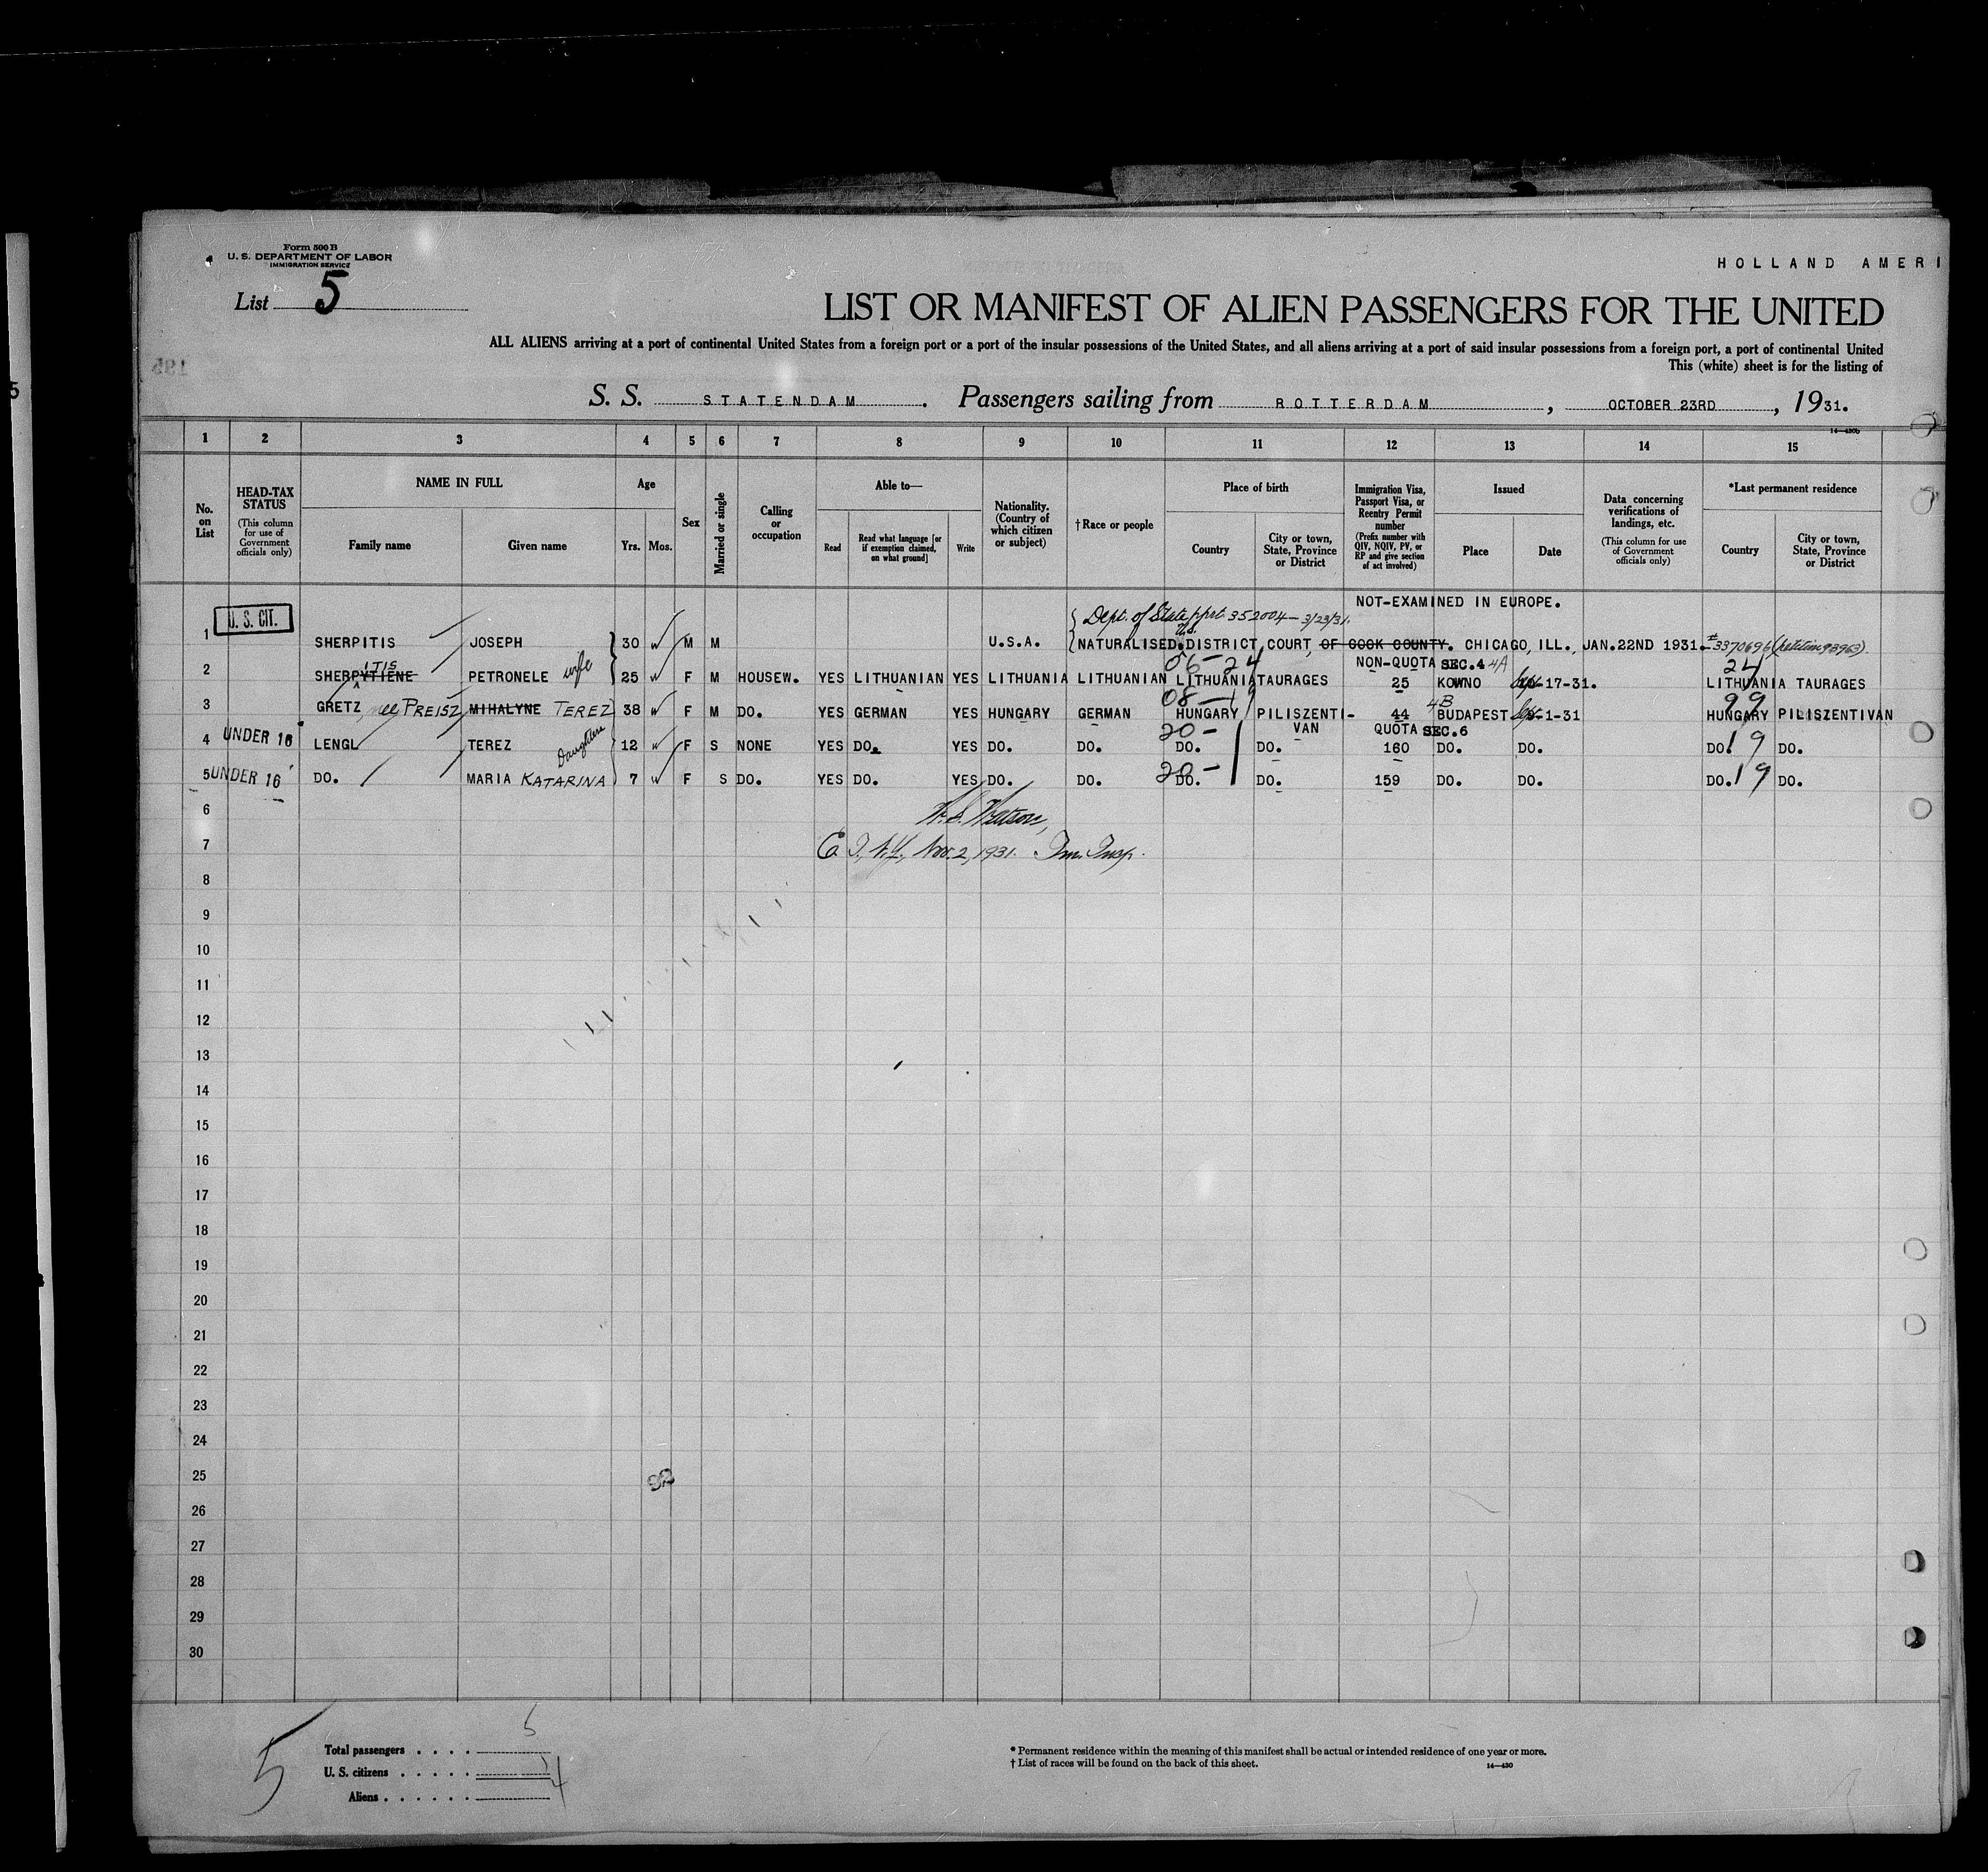 Form 500 B
U. S. DEPARTMENT OF LABOR
IMMIGRATION SERVICE
HOLLAND AMERI
List 5
LIST OR MANIFEST OF ALIEN PASSENGERS FOR THE UNITED
ALL ALIENS arriving at a port of continental United States from a foreign port or a port of the insular possessions of the United States, and all aliens arriving at a port of said insular possessions from a foreign port, a port of continental United
This (white) sheet is for the listing of
195
S. S. STATENDAM. Passengers sailing from ROTTERDAM, OCTOBER 23RD, 1931.
14—430b
1 2 3 4 5 6 7 8 9 10 11 12 13 14 15
No. on List
HEAD-TAX STATUS (This column for use of Government officials only)
NAME IN FULL
Family name Given name
Age
Yrs. Mos.
Sex
Married or single
Calling or occupation
Able to—
Read Read what language [or if exemption claimed, on what ground] Write
Nationality. (Country of which citizen or subject)
†Race or people
Place of birth
Country City or town, State, Province or District
Immigration Visa, Passport Visa, or Reentry Permit number (Prefix number with QIV, NQIV, PV, or RP and give section of act involved)
Issued
Place Date
Data concerning verifications of landings, etc. (This column for use of Government officials only)
*Last permanent residence
Country City or town, State, Province or District
NOT-EXAMINED IN EUROPE.
U. S. CIT. Dept. of State pprt. 352004 — 3/23/31.
1 SHERPITIS JOSEPH 30 M M U.S.A. NATURALISED U.S. DISTRICT COURT, OF COOK COUNTY. CHICAGO, ILL., JAN.22ND 1931. #3370696 (Petition 98963)
06-24 NON-QUOTA SEC.4 4A 24
2 SHERPYTIENE ITIS PETRONELE wife 25 F M HOUSEW. YES LITHUANIAN YES LITHUANIA LITHUANIAN LITHUANIA TAURAGES 25 KOWNO 17-31. LITHUANIA TAURAGES
08-19 4B 99
3 GRETZ, nee PREISZ MIHALYNE TEREZ 38 F M DO. YES GERMAN YES HUNGARY GERMAN HUNGARY PILISZENTI- 44 BUDAPEST 1-31 HUNGARY PILISZENTIVAN
20- VAN QUOTA SEC.6
4 UNDER 16 LENGL TEREZ Daughters 12 F S NONE YES DO. YES DO. DO. DO. DO. 160 DO. DO. DO. 19 DO.
5 UNDER 16 DO. MARIA KATARINA 7 F S DO. YES DO. YES DO. DO. 20- DO. DO. 159 DO. DO. DO. 19 DO.
6
7 E. I., N.Y., Nov. 2, 1931. Im. Insp.
8
9
10
11
12
13
14
15
16
17
18
19
20
21
22
23
24
25
26
27
28
29
30
92
5
Total passengers . . . . 5
U. S. citizens . . . . . 1
Aliens . . . . . . 4
* Permanent residence within the meaning of this manifest shall be actual or intended residence of one year or more.
† List of races will be found on the back of this sheet.
14—430